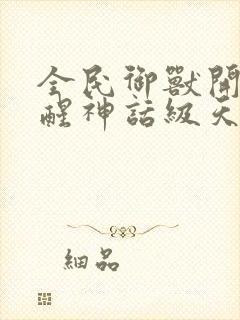 全民御獸開
醒神話級天
細品